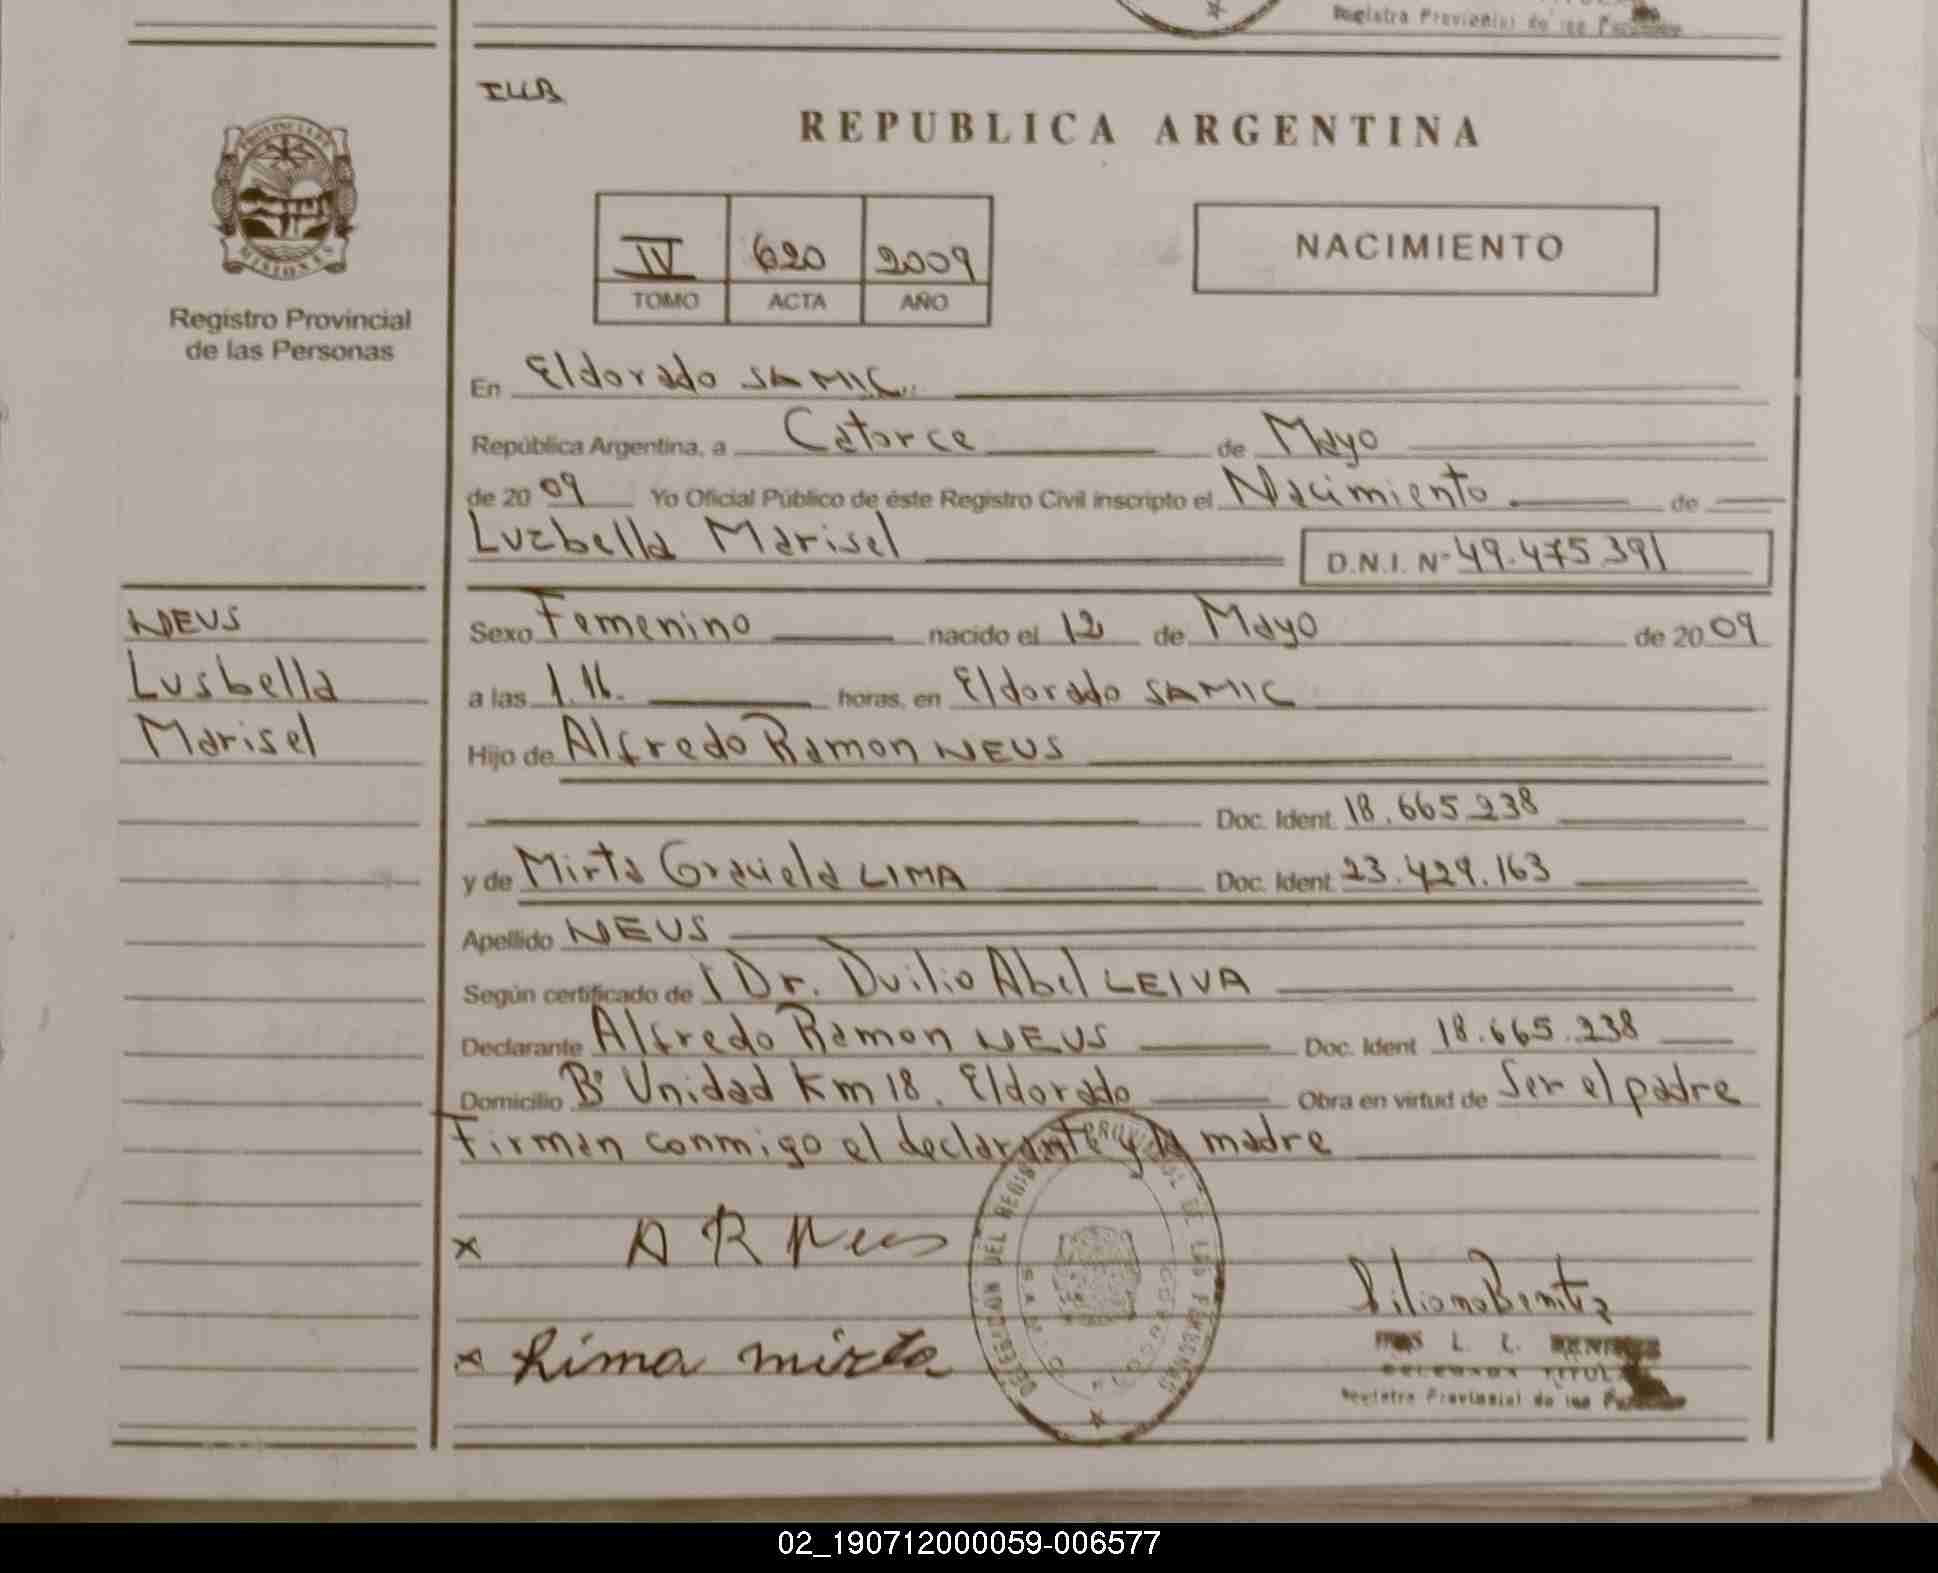 Registra Provincial de las Personas
ILLB
REPUBLICA ARGENTINA
PROVINCIA DE
MISIONES
Registro Provincial
de las Personas
IV 620 2009
TOMO ACTA AÑO
NACIMIENTO
En Eldorado SAMIC.
República Argentina, a Catorce de Mayo
de 20 09 Yo Oficial Público de éste Registro Civil inscripto el Nacimiento de
Luzbella Marisel D.N.I. Nº 49.475.391
NEUS
Lusbella
Marisel
Sexo Femenino nacido el 12 de Mayo de 20 09
a las 1.16. horas, en Eldorado SAMIC
Hijo de Alfredo Ramon NEUS
Doc. Ident. 18.665.238
y de Mirta Graciela LIMA Doc. Ident. 23.429.163
Apellido NEUS
Según certificado de Dr. Duilio Abel LEIVA
Declarante Alfredo Ramon NEUS Doc. Ident 18.665.238
Domicilio Bº Unidad Km 18. Eldorado Obra en virtud de Ser el padre
Firman conmigo el declarante y la madre
x A R Neus
x Lima mirta
DELEGACION DEL REGISTRO PROVINCIAL DE LAS PERSONAS
S.A.M.I.C. ELDORADO
Liliana Benitez
L. L. BENITEZ
DELEGADA TITULAR
Registro Provincial de las Personas
02_190712000059-006577